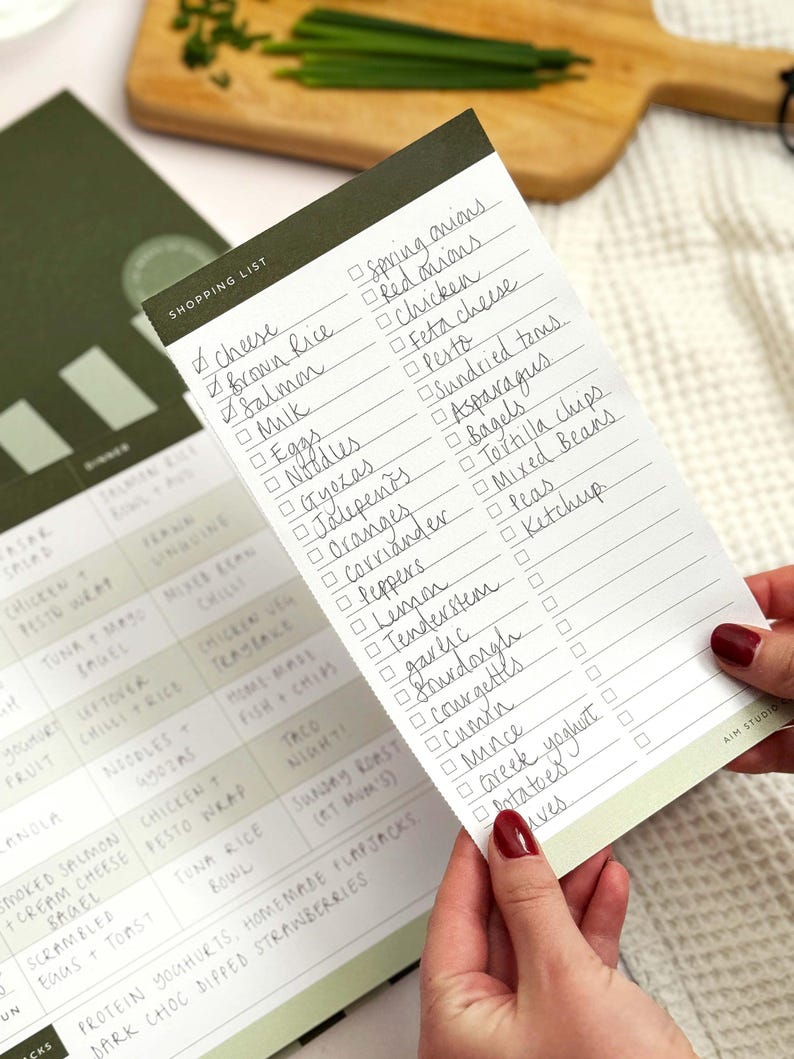 SHOPPING LIST
cheese
Brown Rice
Salmon
Milk
Eggs
Noodles
Gyozas
Jalepeños
Oranges
corriander
Peppers
Lemon
Tenderstem
garlic
Sourdough
courgettes
Cumin
Mince
Greek yoghurt
Potatoes
Spring onions
Red onions
Chicken
Feta cheese
Pesto
Sundried toms.
Asparagus.
Bagels
Tortilla chips
Mixed Beans
Peas
Ketchup.
AIM STUDIO
DINNER
SALAD
SALMON RICE
BOWL +
CHICKEN +
PESTO WRAP
PRAWN
LINGUINE
TUNA + MAYO
BAGEL
MIXED BEAN
CHILLI
YOGHURT
FRUIT
LEFTOVER
CHILLI + RICE
CHICKEN VEG
TRAYBAKE
NOODLES +
GYOZAS
HOME MADE
FISH + CHIPS
CHICKEN +
PESTO WRAP
TACO
NIGHT!
SMOKED SALMON
+ CREAM CHEESE
BAGEL
TUNA RICE
BOWL
SUNDAY ROAST
(AT MUM'S)
SCRAMBLED
EGGS + TOAST
PROTEIN YOGHURTS, HOMEMADE FLAPJACKS,
DARK CHOC DIPPED STRAWBERRIES.